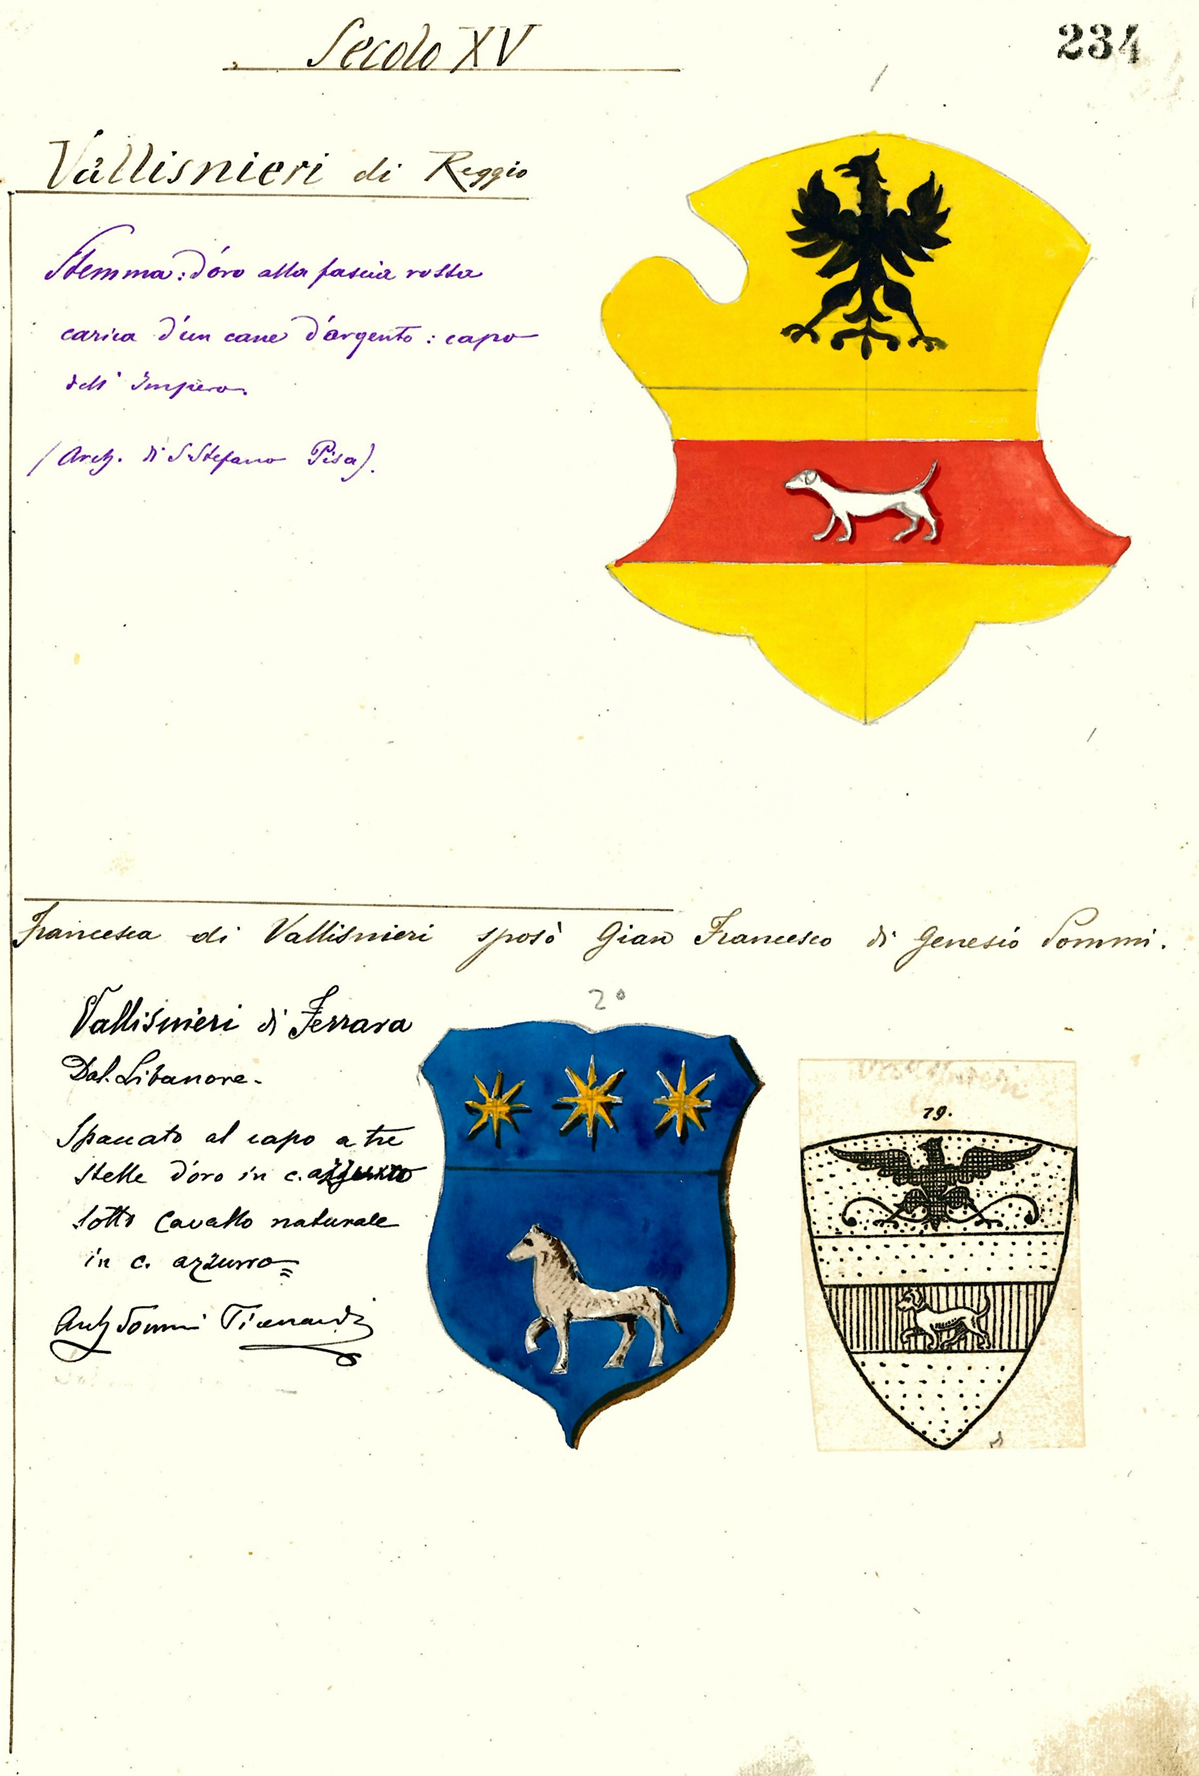 Secolo XV
234
Vallisnieri di Reggio
Stemma: d'oro alla fascia rossa
carica d'un cane d'argento: capo
dell' Impero.
(Arch. di S. Stefano Pisa).
Francesca di Vallisnieri sposò Gian Francesco di Genesio Sommi.
2°
Vallisnieri di Ferrara
Dal Libanore.
Spaccato al capo a tre
stelle d'oro in c. azzurro
sotto cavallo naturale
in c. azzurro
Arch Sommi Picenardi
79.